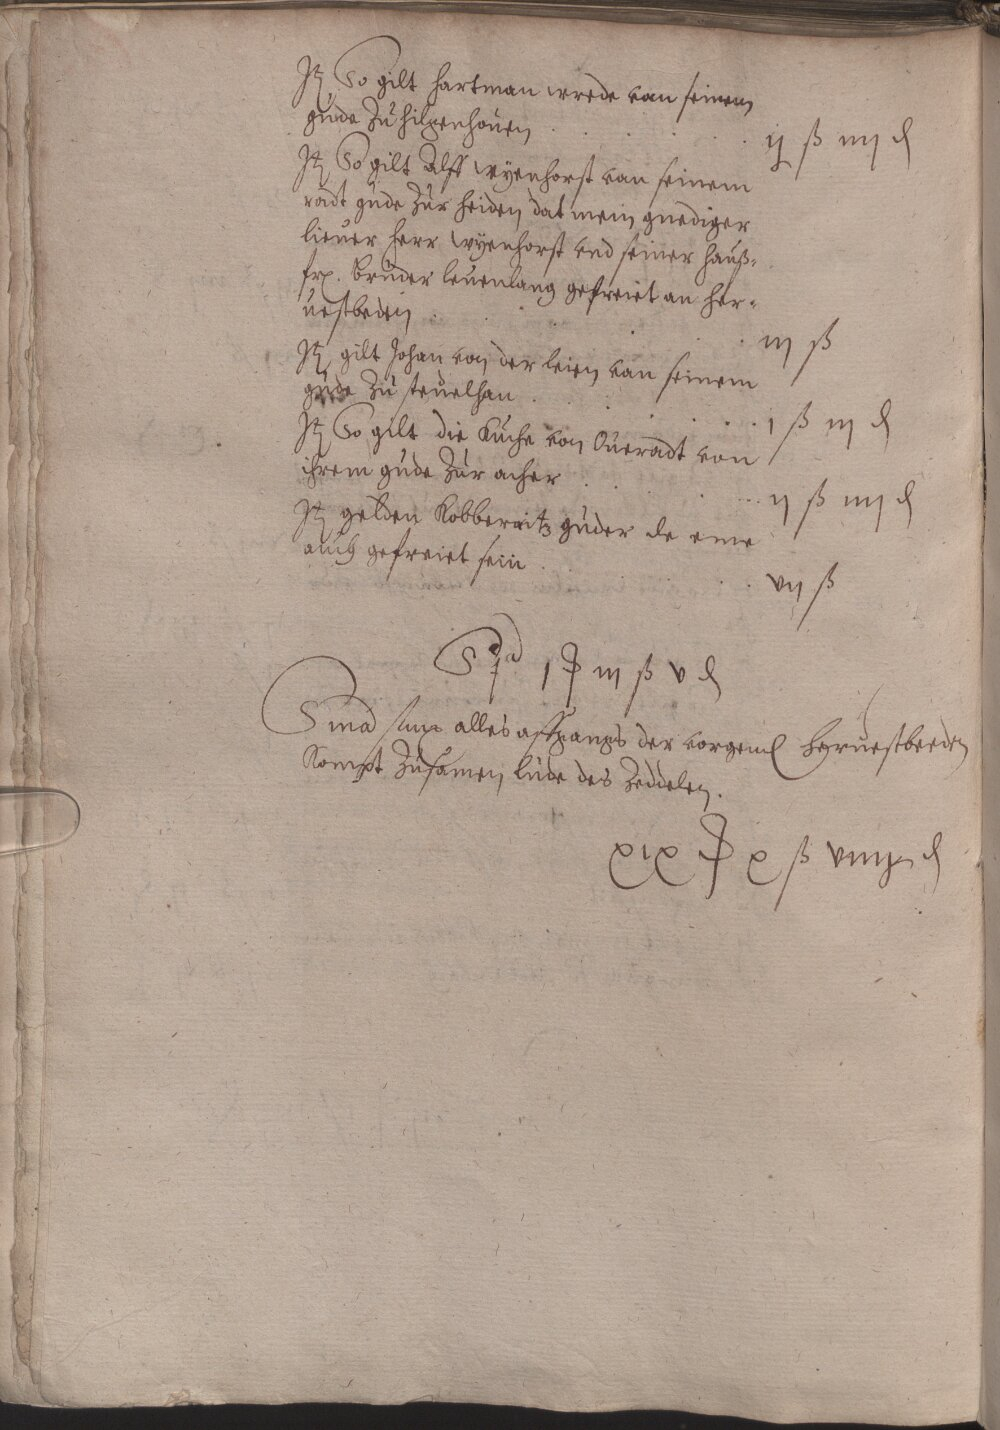 Jt So gilt hartman wrede van seinem
gude Zu hilgenhouen ij ß iiij d
Jt So gilt Alff wyenhorst van seinem
radt gude Zur heiden dat mein gnediger
lieuer herr wyenhorst vnd seiner hauß-
frx. bruder leuenlang gefreiet an her-
uestbeden iij ß
Jt gilt Johan von der leien van seinem
gude Zu steuelhan j ß iij d
Jt So gilt die Kuche von Oueradt von
ihrem gude Zur acher ij ß iiij d
Jt gelden Kobberitz guder de eine
auch gefreiet sein vij ß
Sa j iij ß v d
Sma alles der vorgeml heruestbeeden
Kompt Zusamen lude des Zeddelen.
xix x ß viiij d